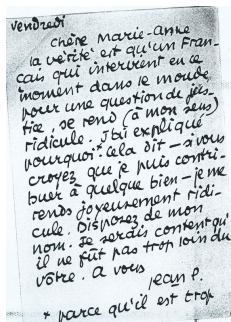 vendredi
Chère Marie-Anne
la vérité est qu'un Fran-
çais qui intervient en ce
moment dans le monde
pour une question de jus-
tice, se rend (à mon sens)
ridicule. J'ai expliqué
pourquoi*. Cela dit — si vous
croyez que je puis contri-
buer à quelque bien — je me
rends joyeusement ridi-
cule. Disposez de mon
nom. Je serais content qu'
il ne fût pas trop loin du
vôtre. à vous
Jean P.
* parce qu'il est trop